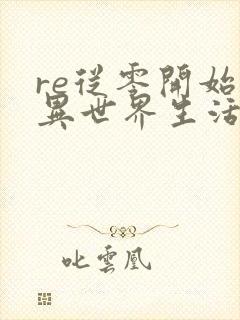 re從零開始
異世界生活
叱雲凰